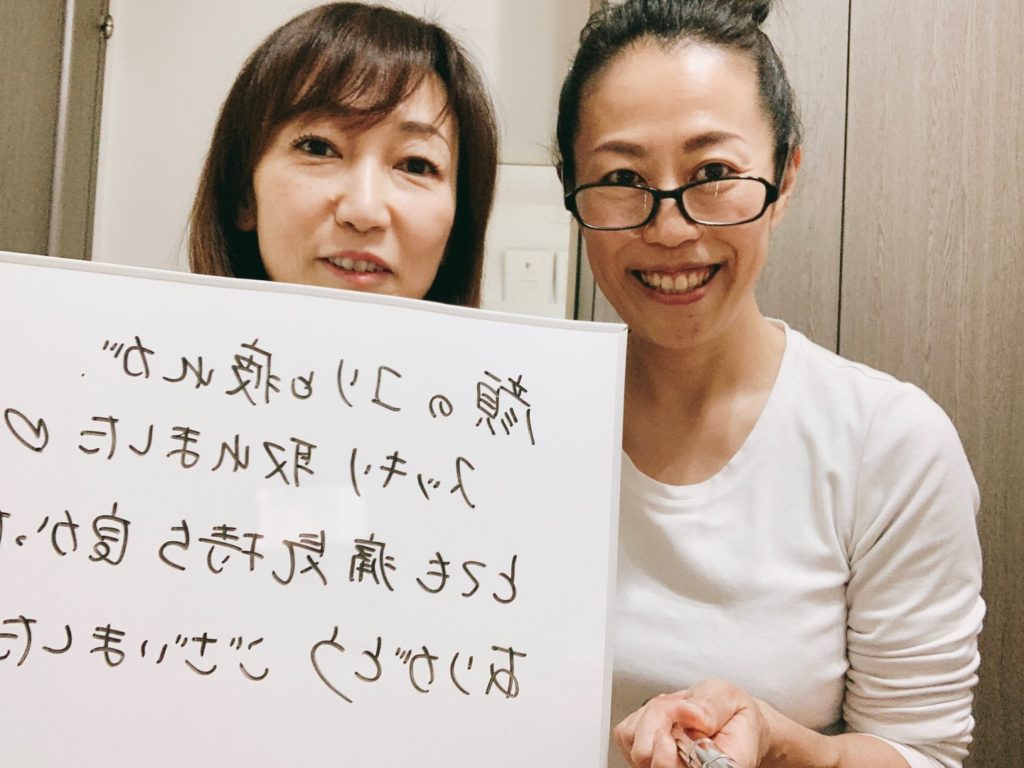 顔のコリと疲れが
スッキリ取れました♡
とても痛気持ち良かった
ありがとうございました